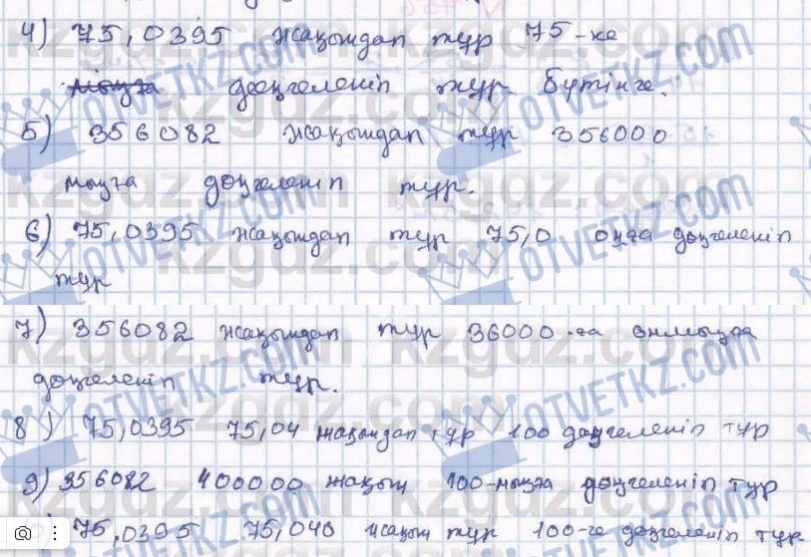 4) 75,0395 жақындап тұр 75-ке
дөңгеленіп тұр бүтінге.
5) 356082 жақындап тұр 356000
мыңға дөңгеленіп тұр.
6) 75,0395 жақындап тұр 75,0 онға дөңгеленіп
тұр
7) 356082 жақындап тұр 36000-ға онмыңға
дөңгеленіп тұр.
8) 75,0395 75,04 жақындап тұр 100 дөңгеленіп тұр
9) 356082 400000 жақын 100-мыңға дөңгеленіп тұр
75,0395 75,040 жақын тұр 100-ге дөңгеленіп тұр
kzgdz.com
OTVETKZ.COM